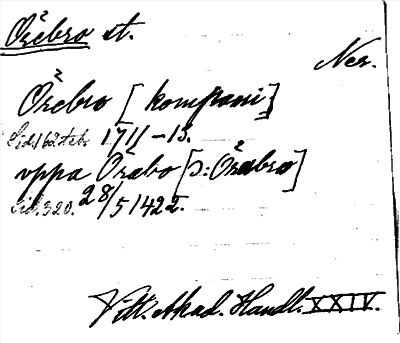 Örebro st.
Ner.
Örebro [kompani]
Sid. 162 1711–13.
vppa Örabo [ɔ: Örebro]
Sid. 320. 28/5 1422.
Vitt. Akad. Handl. XXIV.